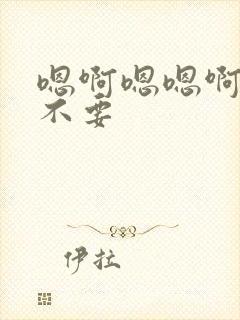 嗯啊嗯嗯啊
不要
伊拉